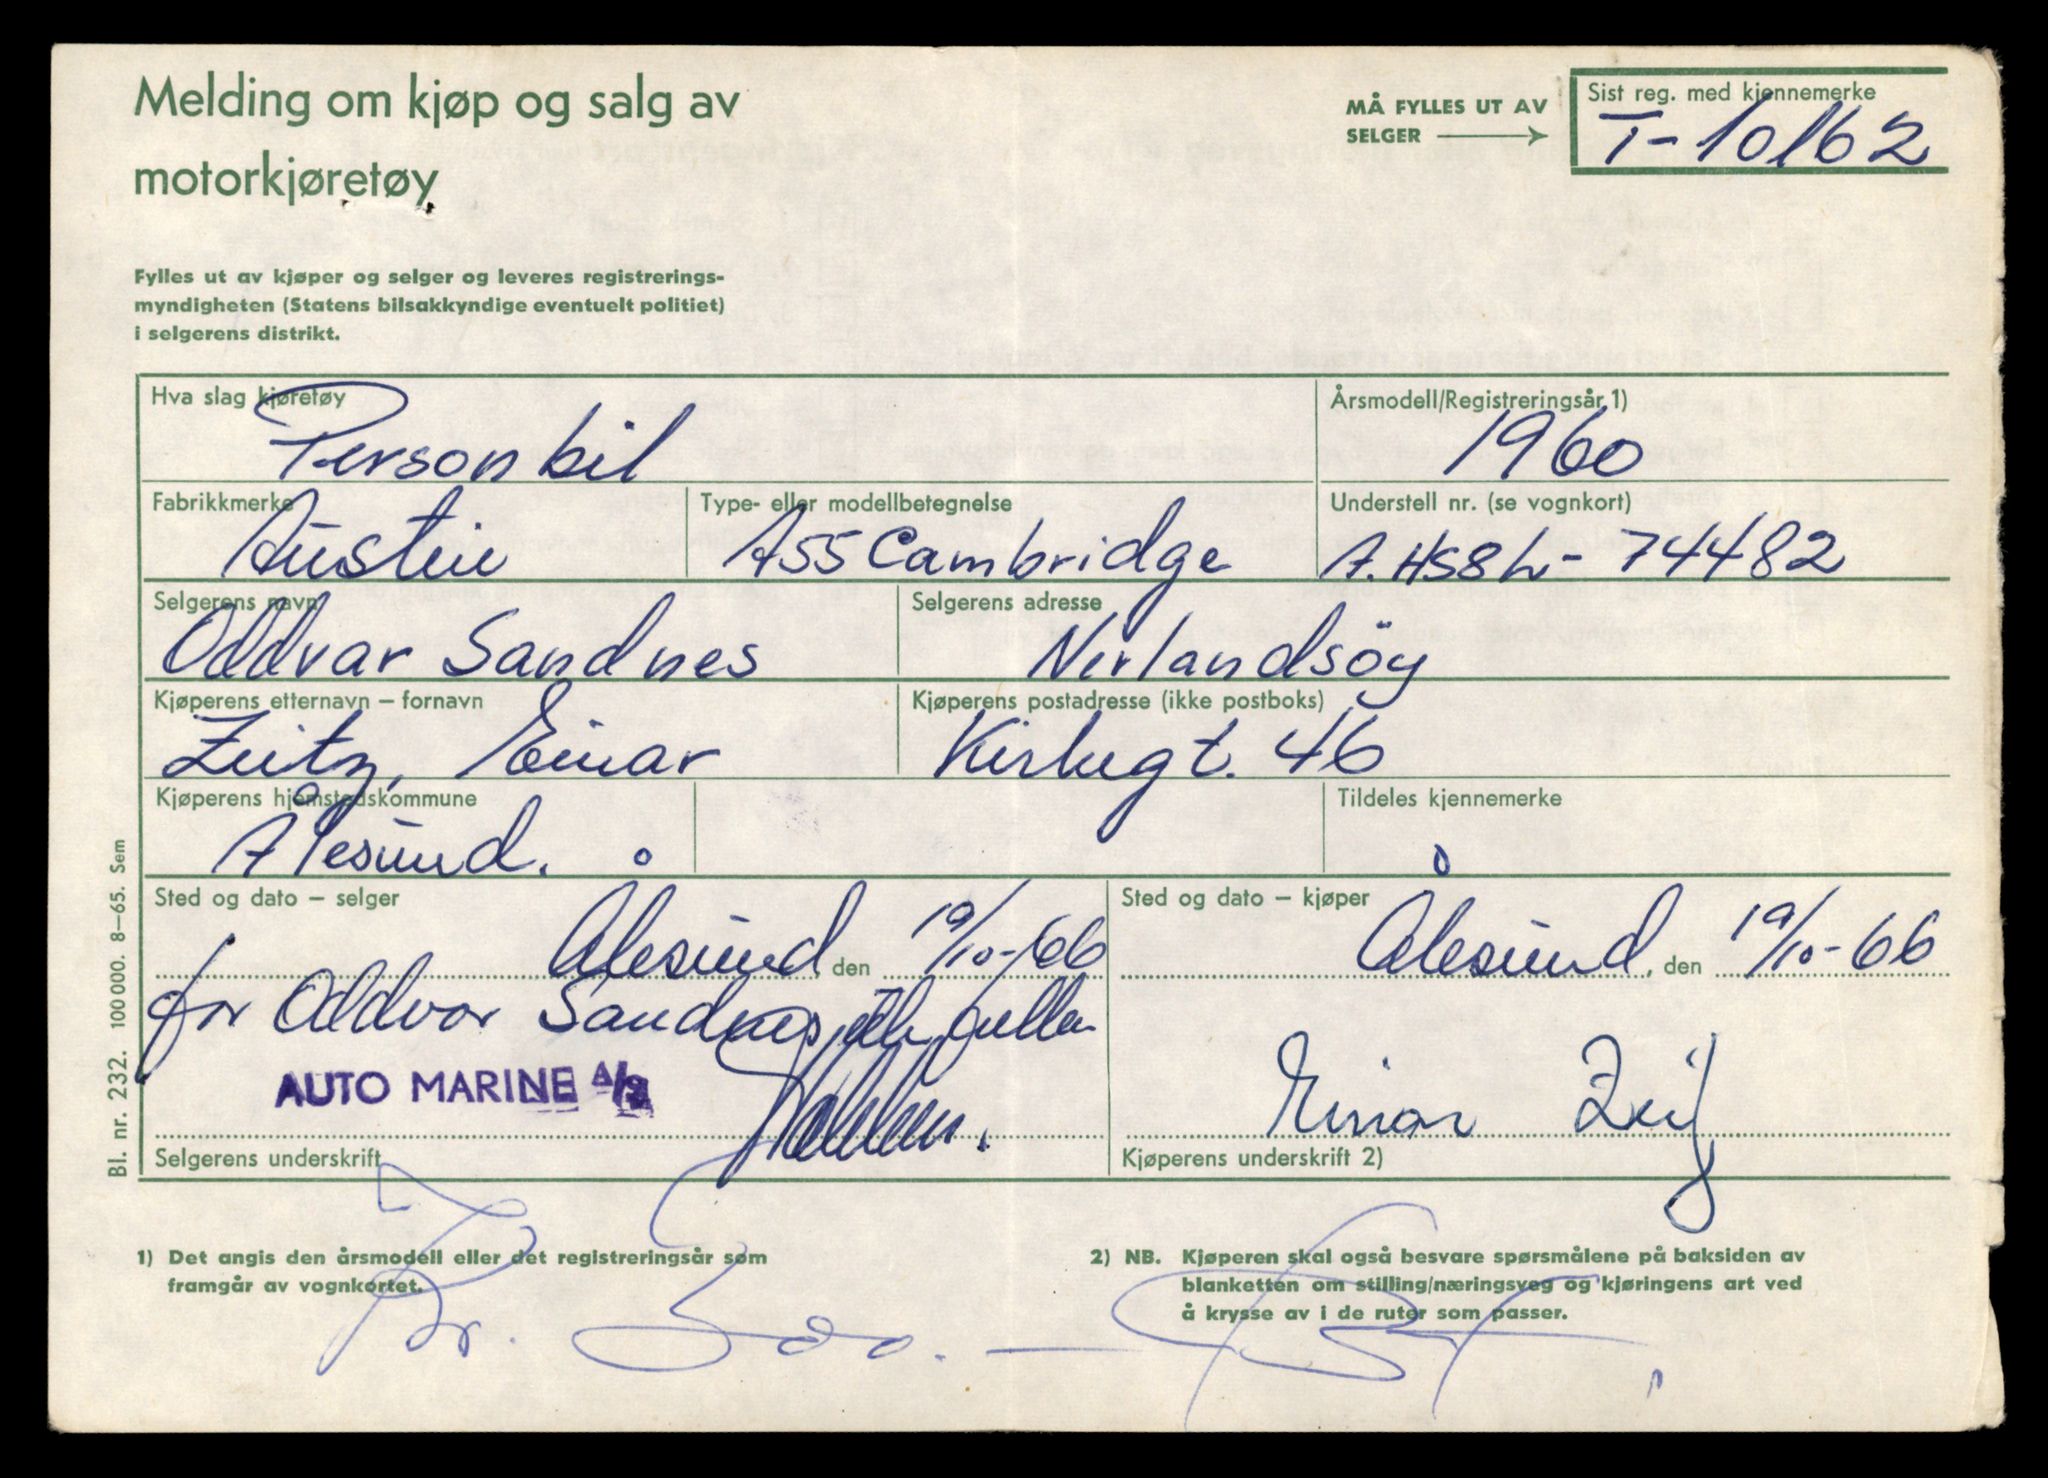 Melding om kjøp og salg av
motorkjøretøy
MÅ FYLLES UT AV
SELGER
Sist reg. med kjennemerke
T-10162
Fylles ut av kjøper og selger og leveres registrerings-
myndigheten (Statens bilsakkyndige eventuelt politiet)
i selgerens distrikt.
Hva slag kjøretøy
Personbil
Årsmodell/Registreringsår 1)
1960
Fabrikkmerke
Austin
Type- eller modellbetegnelse
A55 Cambridge
Understell nr. (se vognkort)
A.HS8L-74482
Selgerens navn
Oddvar Sandnes
Selgerens adresse
Nerlandsöy
Kjøperens etternavn – fornavn
Zeitz, Einar
Kjøperens postadresse (ikke postboks)
46
Kjøperens hjemstedskommune
Ålesund.
Tildeles kjennemerke
Sted og dato – selger
Ålesund den 19/10-66
Sted og dato – kjøper
Ålesund, den 19/10-66
for Oddvar Sandnes
AUTO MARINE A/S
Selgerens underskrift
Einar
Kjøperens underskrift 2)
Bl. nr. 232. 100 000. 8–65. Sem
1) Det angis den årsmodell eller det registreringsår som
framgår av vognkortet.
2) NB. Kjøperen skal også besvare spørsmålene på baksiden av
blanketten om stilling/næringsveg og kjøringens art ved
å krysse av i de ruter som passer.
Kr.